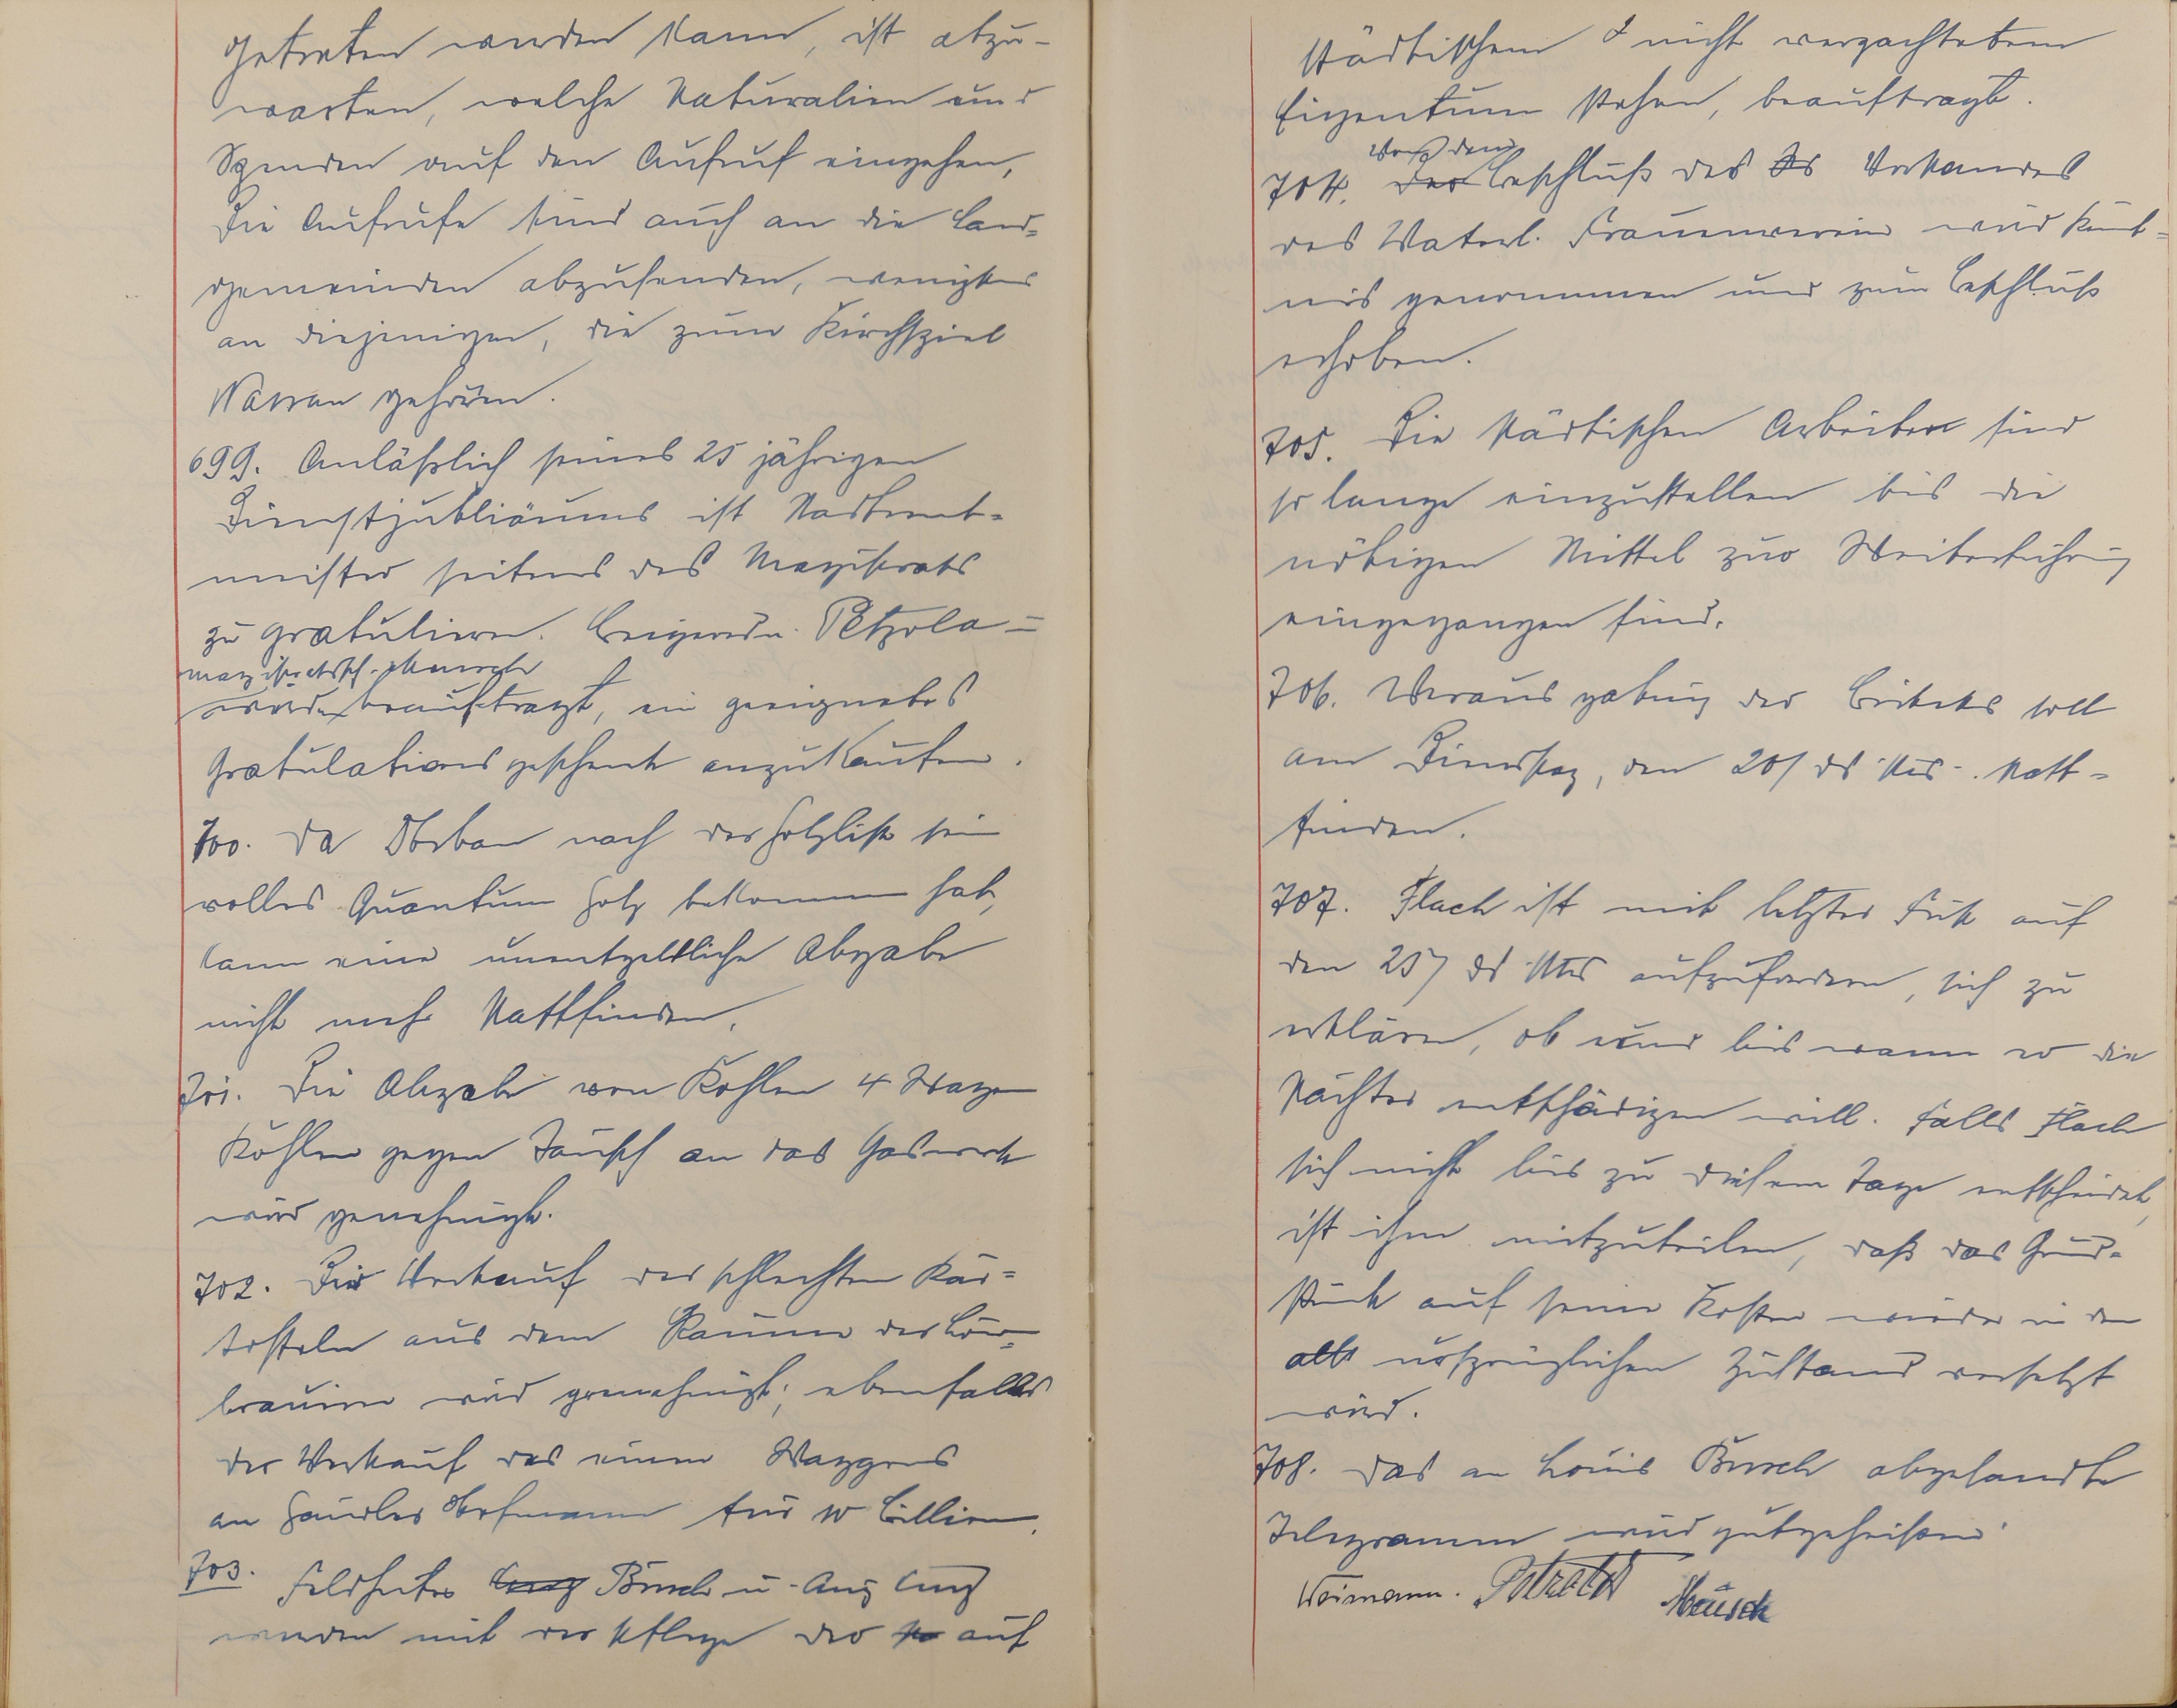 getreten werden kann, ist abzu-
warten, welche Naturalien und
Spenden auf den Aufruf eingehen,
Die Aufrufe sind auch an die Land-
gemeinden abzusenden, wenigstens
an diejenigen, die zum Kirchspiel
gehören.
699. Anläßlich seines 25 jährigen
Dienstjubliäums ist Stadtrent-
meister seitens des Magistrats
zu gratulieren. Beigeordn. Petzold
Magistratssch. Mensch
wurde beauftragt, ein geeignetes
Gratulationsgeschenk anzukaufen.
700. Da Urban nach der Holzliste sein
volles Quantum Holz bekommen hat,
kann eine unentgeltliche Abgabe
nicht mehr stattfinden.
701. Die Abgabe von Kohlen 4 Wagen
Kohlen gegen Tausch an das Gaswerk
wird genehmigt.
702. Der Verkauf der schlechten Kar-
toffeln aus dem Raume der Löw-
brauerei wird genehmigt; ebenfalls
der Verkauf des einen Waggons
an Händler Hofmann für 10 Billion.
703. Feldhüter Busch u. Aug
werden mit der Pflege der auf
städtischem & nicht verpachtetem
Eigentum stehen, beauftragt.
704. Beschluß des Vorstandes
des Vaterl. Frauenverein wird Kennt-
nis genommen und zum Beschluß
erhoben.
705. Die städtischen Arbeiten sind
so lange einzustellen bis die
nötigen Mittel zur Weiterführung
eingegangen sind.
706. Verausgabung der Briketts soll
am Dienstag, den 20/ ds Mts. statt-
finden.
707. Flach ist mit letzter Frist auf
den 25/ ds Mts aufzufordern, sich zu
erklären, ob und bis wann er die
Pächter entschädigen will. Falls Flach
sich nicht bis zu diesem Tage entscheidet,
ist ihm mitzuteilen, daß das Grund-
stück auf seine Kosten wieder in den
alt ursprünglichen Zustand versetzt
wird.
708. Das an Louis Busch abgesandte
Telegramm wird gutgeheißen.
Weimann. Petzold Mensch